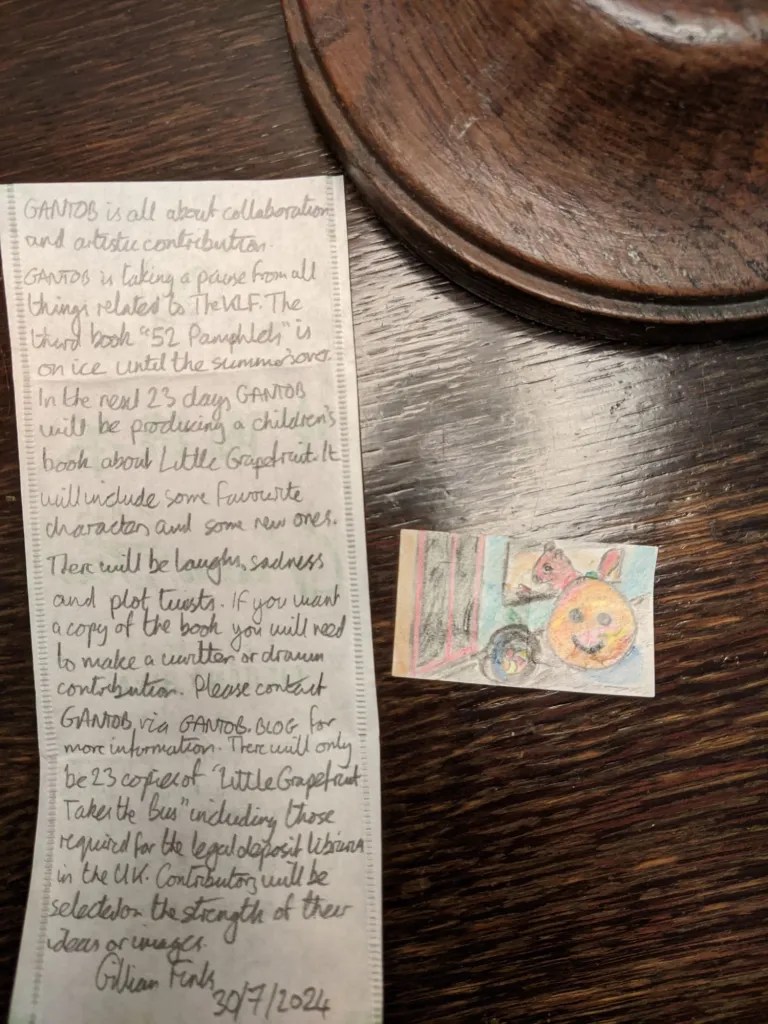 GANTOB is all about collaboration
and artistic contribution.
GANTOB is taking a pause from all
things related to The KLF. The
third book "52 Pamphlets" is
on ice until the summer's over.
In the next 23 days GANTOB
will be producing a children's
book about Little Grapefruit. It
will include some favourite
characters and some new ones.
There will be laughs, sadness
and plot twists. If you want
a copy of the book you will need
to make a written or drawn
contribution. Please contact
GANTOB via GANTOB.BLOG for
more information. There will only
be 23 copies of "Little Grapefruit
Takes the Bus" including those
required for the legal deposit libraries
in the UK. Contributors will be
selected on the strength of their
ideas or images.
Gillian Finks
30/7/2024